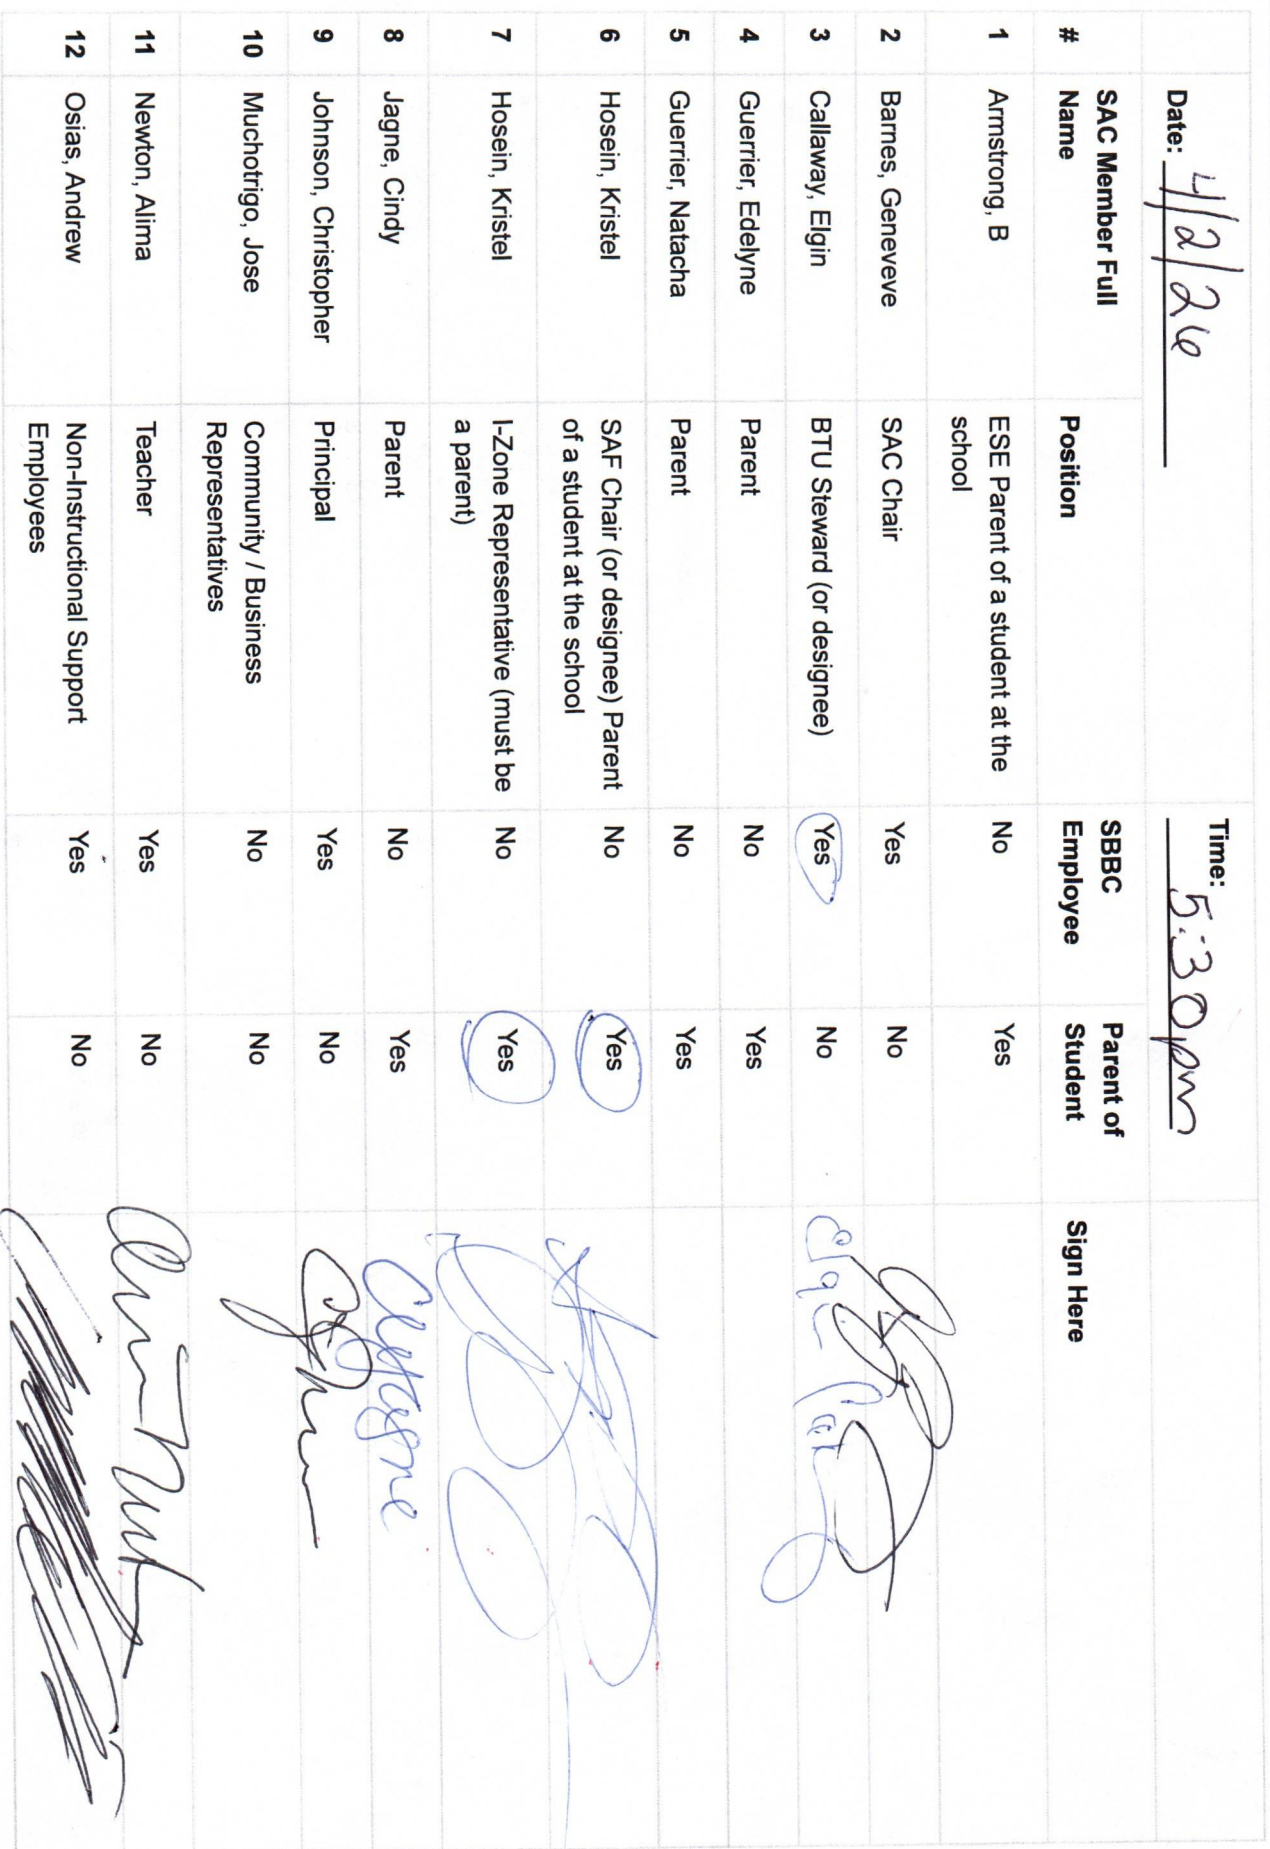 Date: 4/2/26 Time: 5:30pm
# SAC Member Full Name Position SBBC Employee Parent of Student Sign Here
1 Armstrong, B ESE Parent of a student at the school No Yes
2 Barnes, Geneveve SAC Chair Yes No
3 Callaway, Elgin BTU Steward (or designee) Yes No
4 Guerrier, Edelyne Parent No Yes
5 Guerrier, Natacha Parent No Yes
6 Hosein, Kristel SAF Chair (or designee) Parent of a student at the school No Yes
7 Hosein, Kristel I-Zone Representative (must be a parent) No Yes
8 Jagne, Cindy Parent No Yes CJagne
9 Johnson, Christopher Principal Yes No
10 Muchotrigo, Jose Community / Business Representatives No No
11 Newton, Alima Teacher Yes No
12 Osias, Andrew Non-Instructional Support Employees Yes No